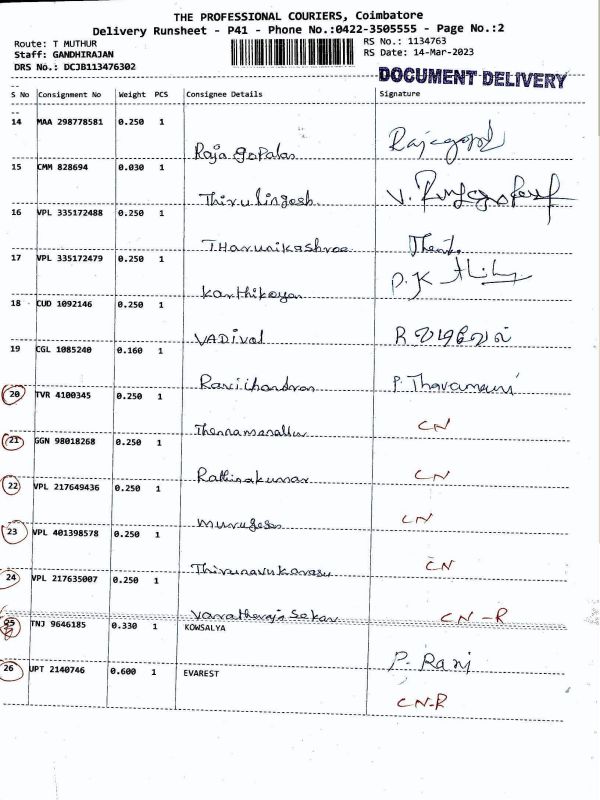 THE PROFESSIONAL COURIERS, Coimbatore
Delivery Runsheet - P41 - Phone No.:0422-3505555 - Page No.:2
Route: T MUTHUR
Staff: GANDHIRAJAN
DRS No.: DCJB113476302
RS No.: 1134763
RS Date: 14-Mar-2023
DOCUMENT DELIVERY
S No Consignment No Weight PCS Consignee Details Signature
14 MAA 298778581 0.250 1
Raja gopalan Rajagopal
15 CMM 828694 0.030 1
Thirulingesh V.
16 VPL 335172488 0.250 1
THarunikashree
17 VPL 335172479 0.250 1
Karthikeyan P.K
18 CUD 1092146 0.250 1
VADIvel R வடிவேல்
19 CGL 1085240 0.160 1
Ravichandran P. Thavamani
20 TVR 4100345 0.250 1
CN
21 GGN 98018268 0.250 1
Rathinakumar CN
22 VPL 217649436 0.250 1
Murugesan CN
23 VPL 401398578 0.250 1
Thirunavukarasu CN
24 VPL 217635007 0.250 1
CN -R
25 TNJ 9646185 0.330 1 KOWSALYA
P. Rani
26 UPT 2140746 0.600 1 EVAREST
CN-R